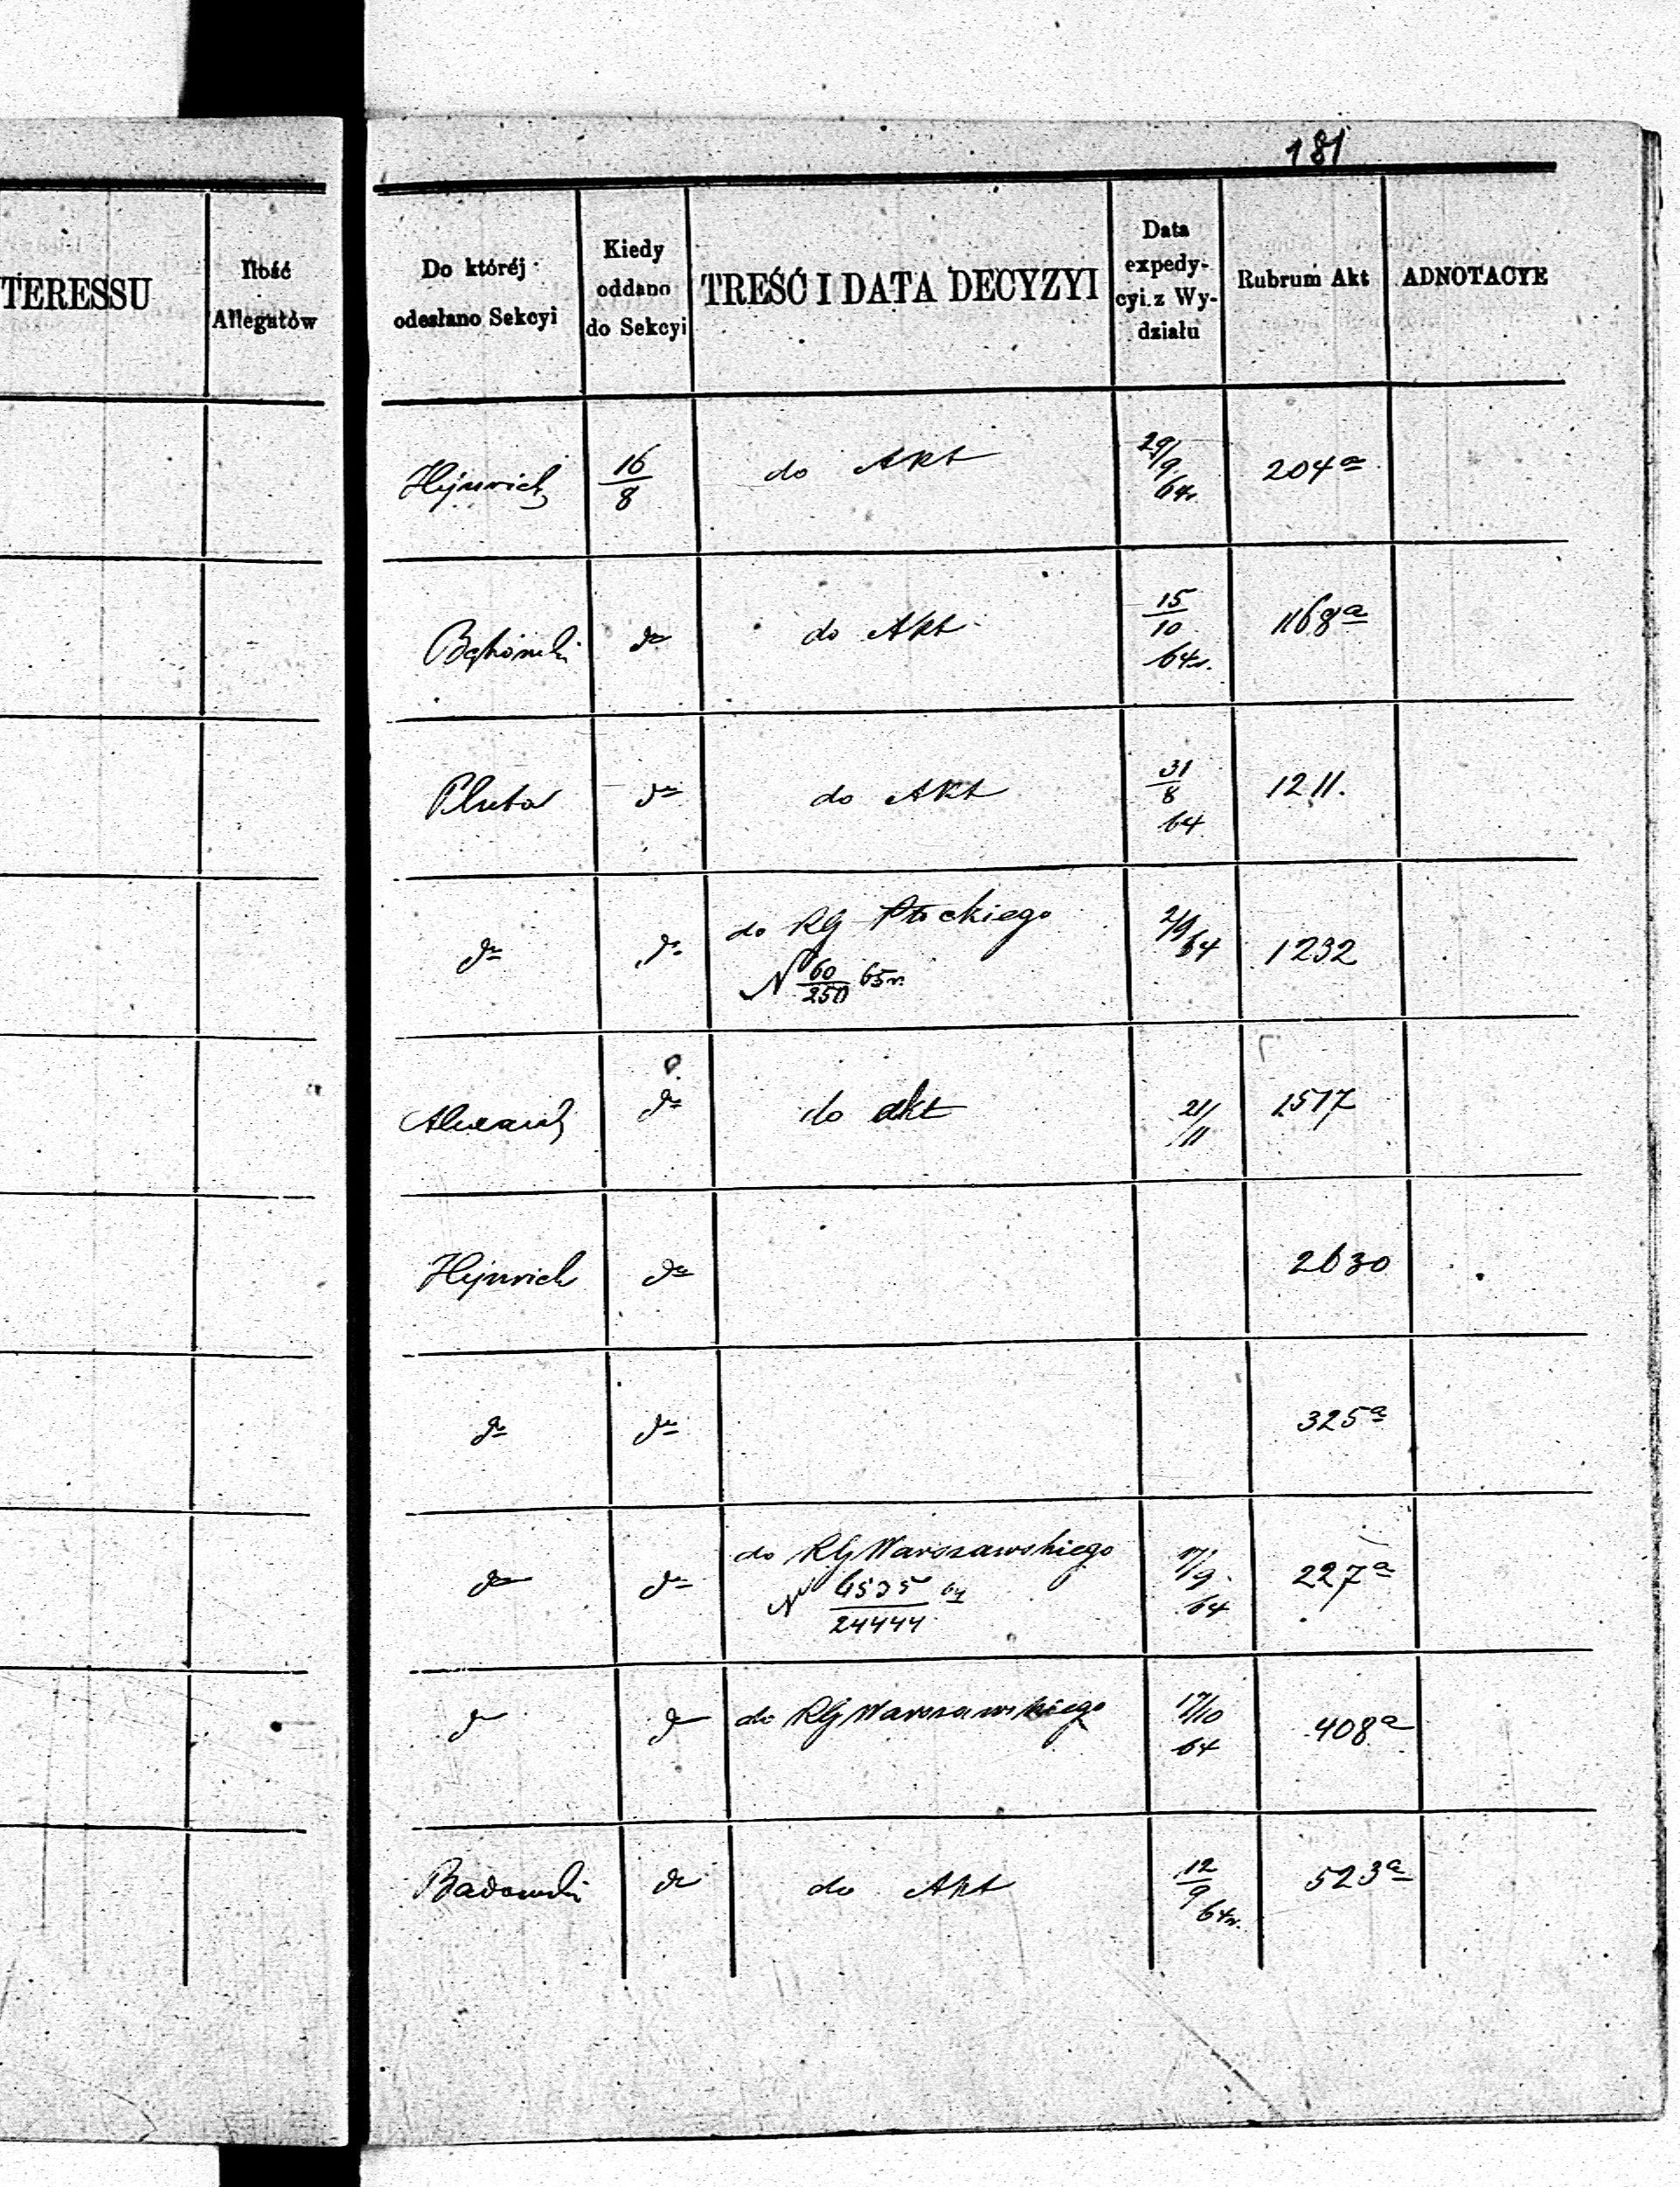 181
TERESSU
Ilość
Allegatów
Do któréj
odesłano Sekcyi
Kiedy
oddano
do Sekcyi
TREŚĆ I DATA DECYZYI
Data
expedy-
cyi z Wy-
działu
Rubrum Akt
ADNOTACYE
16/8 do Akt 29/9 64r. 204a
do do Akt 15/10 64r. 1168a
Pluta do do Akt 31/8 64 1211.
do do do RG Płockiego 2/9 64 1232
N 60/250 65r.
do do akt 21/11 1517
do 2630
do do 325a
do do do RG Warszawskiego 17/9 64 227a
N 6535/24444 64
do do do RG Warszawskiego 17/10 64 408a
Badowski do do Akt 12/9 64r. 523a